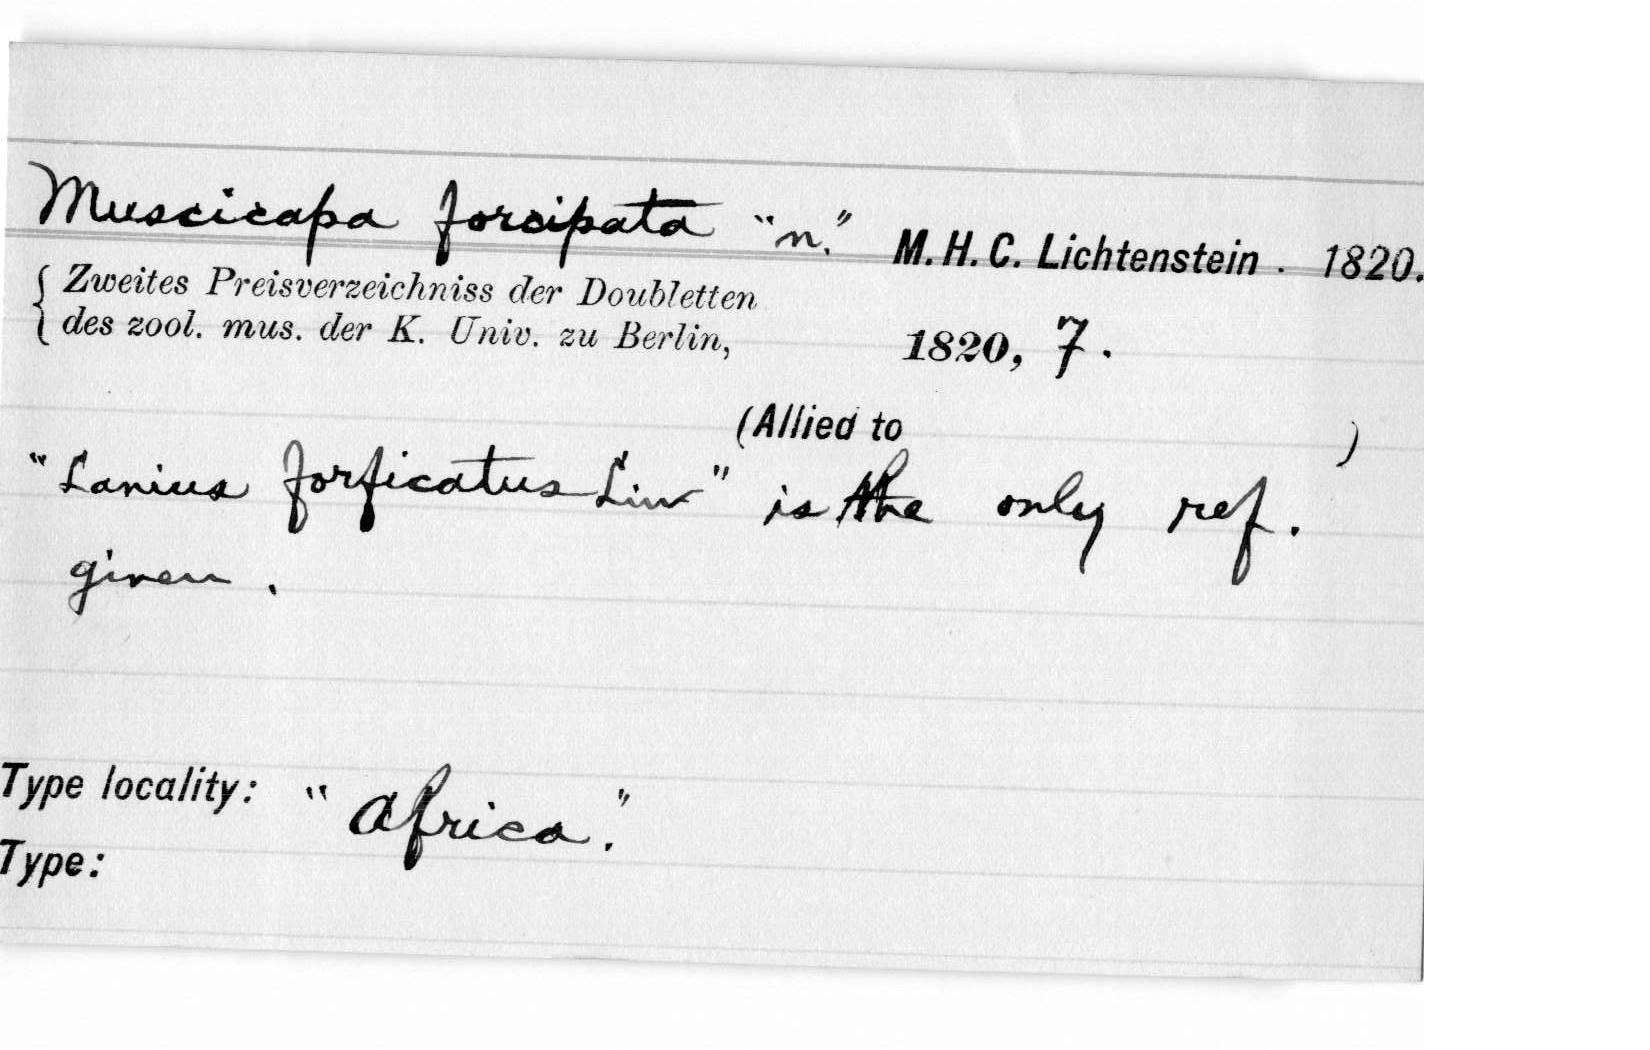 Muscicapa forcipata "n." M. H. C. Lichtenstein . 1820.
{ Zweites Preisverzeichniss der Doubletten
des zool. mus. der K. Univ. zu Berlin, 1820, 7 .
(Allied to )
"Lanius forficatus Linn" is the only ref.
given .
Type locality: "Africa."
Type: